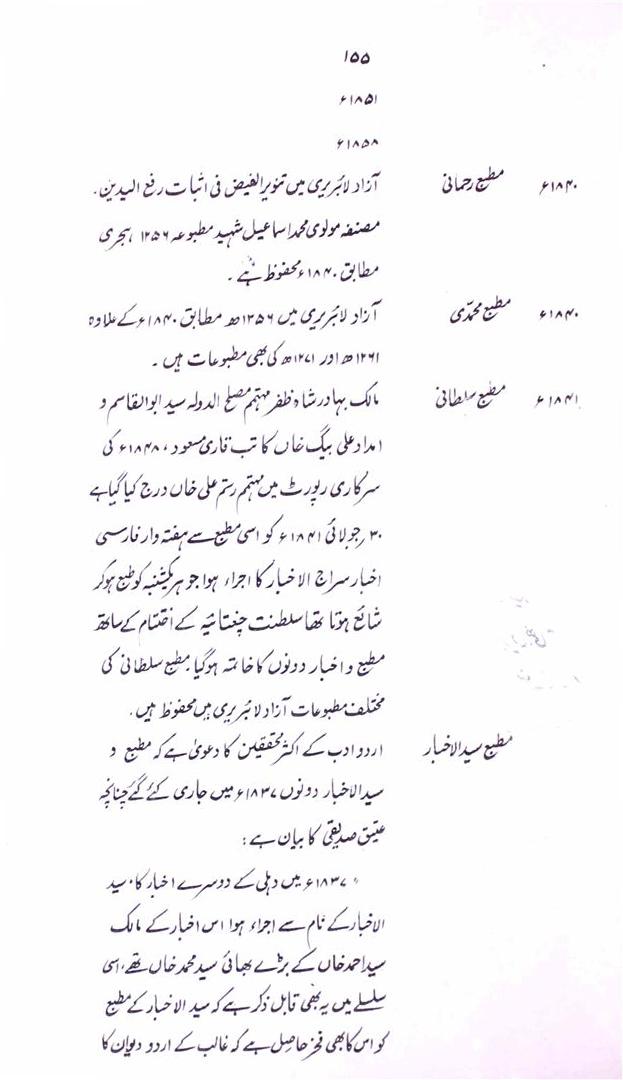 ۱۵۵
۱۸۵۱ء
۱۸۵۸ء
۱۸۴۰ء مطبع رحمانی آزاد لائبریری میں تنویر العیض فی اثبات رفع الیدین۔
مصنفہ مولوی محمد اسماعیل شہید مطبوعہ ۱۲۵۶ ہجری
مطابق ۱۸۴۰ء محفوظ ہے۔
۱۸۴۰ء مطبع محمدی آزاد لائبریری میں ۱۲۵۶ھ مطابق ۱۸۴۰ء کے علاوہ
۱۲۶۱ھ اور ۱۲۷۱ھ کی بھی مطبوعات ہیں۔
۱۸۴۱ء مطبع سلطانی مالک بہادر شاہ ظفر مہتمم مصلح الدولہ سید ابوالقاسم و
امداد علی بیگ خاں کاتب قاری مسعود، ۱۸۴۸ء کی
سرکاری رپورٹ میں مہتمم رستم علی خاں درج کیا گیا ہے
۳۰؍جولائی ۱۸۴۱ء کو اسی مطبع سے ہفتہ وار فارسی
اخبار سراج الاخبار کا اجراء ہوا جو ہر یکشنبہ کو طبع ہو کر
شائع ہوتا تھا سلطنت چغتائیہ کے اختتام کے ساتھ
مطبع و اخبار دونوں کا خاتمہ ہو گیا مطبع سلطانی کی
مختلف مطبوعات آزاد لائبریری میں محفوظ ہیں۔
مطبع سید الاخبار اردو ادب کے اکثر محققین کا دعویٰ ہے کہ مطبع و
سید الاخبار دونوں ۱۸۳۷ء میں جاری کئے گئے چنانچہ
عتیق صدیقی کا بیان ہے:
"۱۸۳۷ء میں دہلی کے دوسرے اخبار کا، سید
الاخبار کے نام سے اجراء ہوا اس اخبار کے مالک
سید احمد خاں کے بڑے بھائی سید محمد خاں تھے، اسی
سلسلے میں یہ بھی قابل ذکر ہے کہ سید الاخبار کے مطبع
کو اس کا بھی فخر حاصل ہے کہ غالب کے اردو دیوان کا